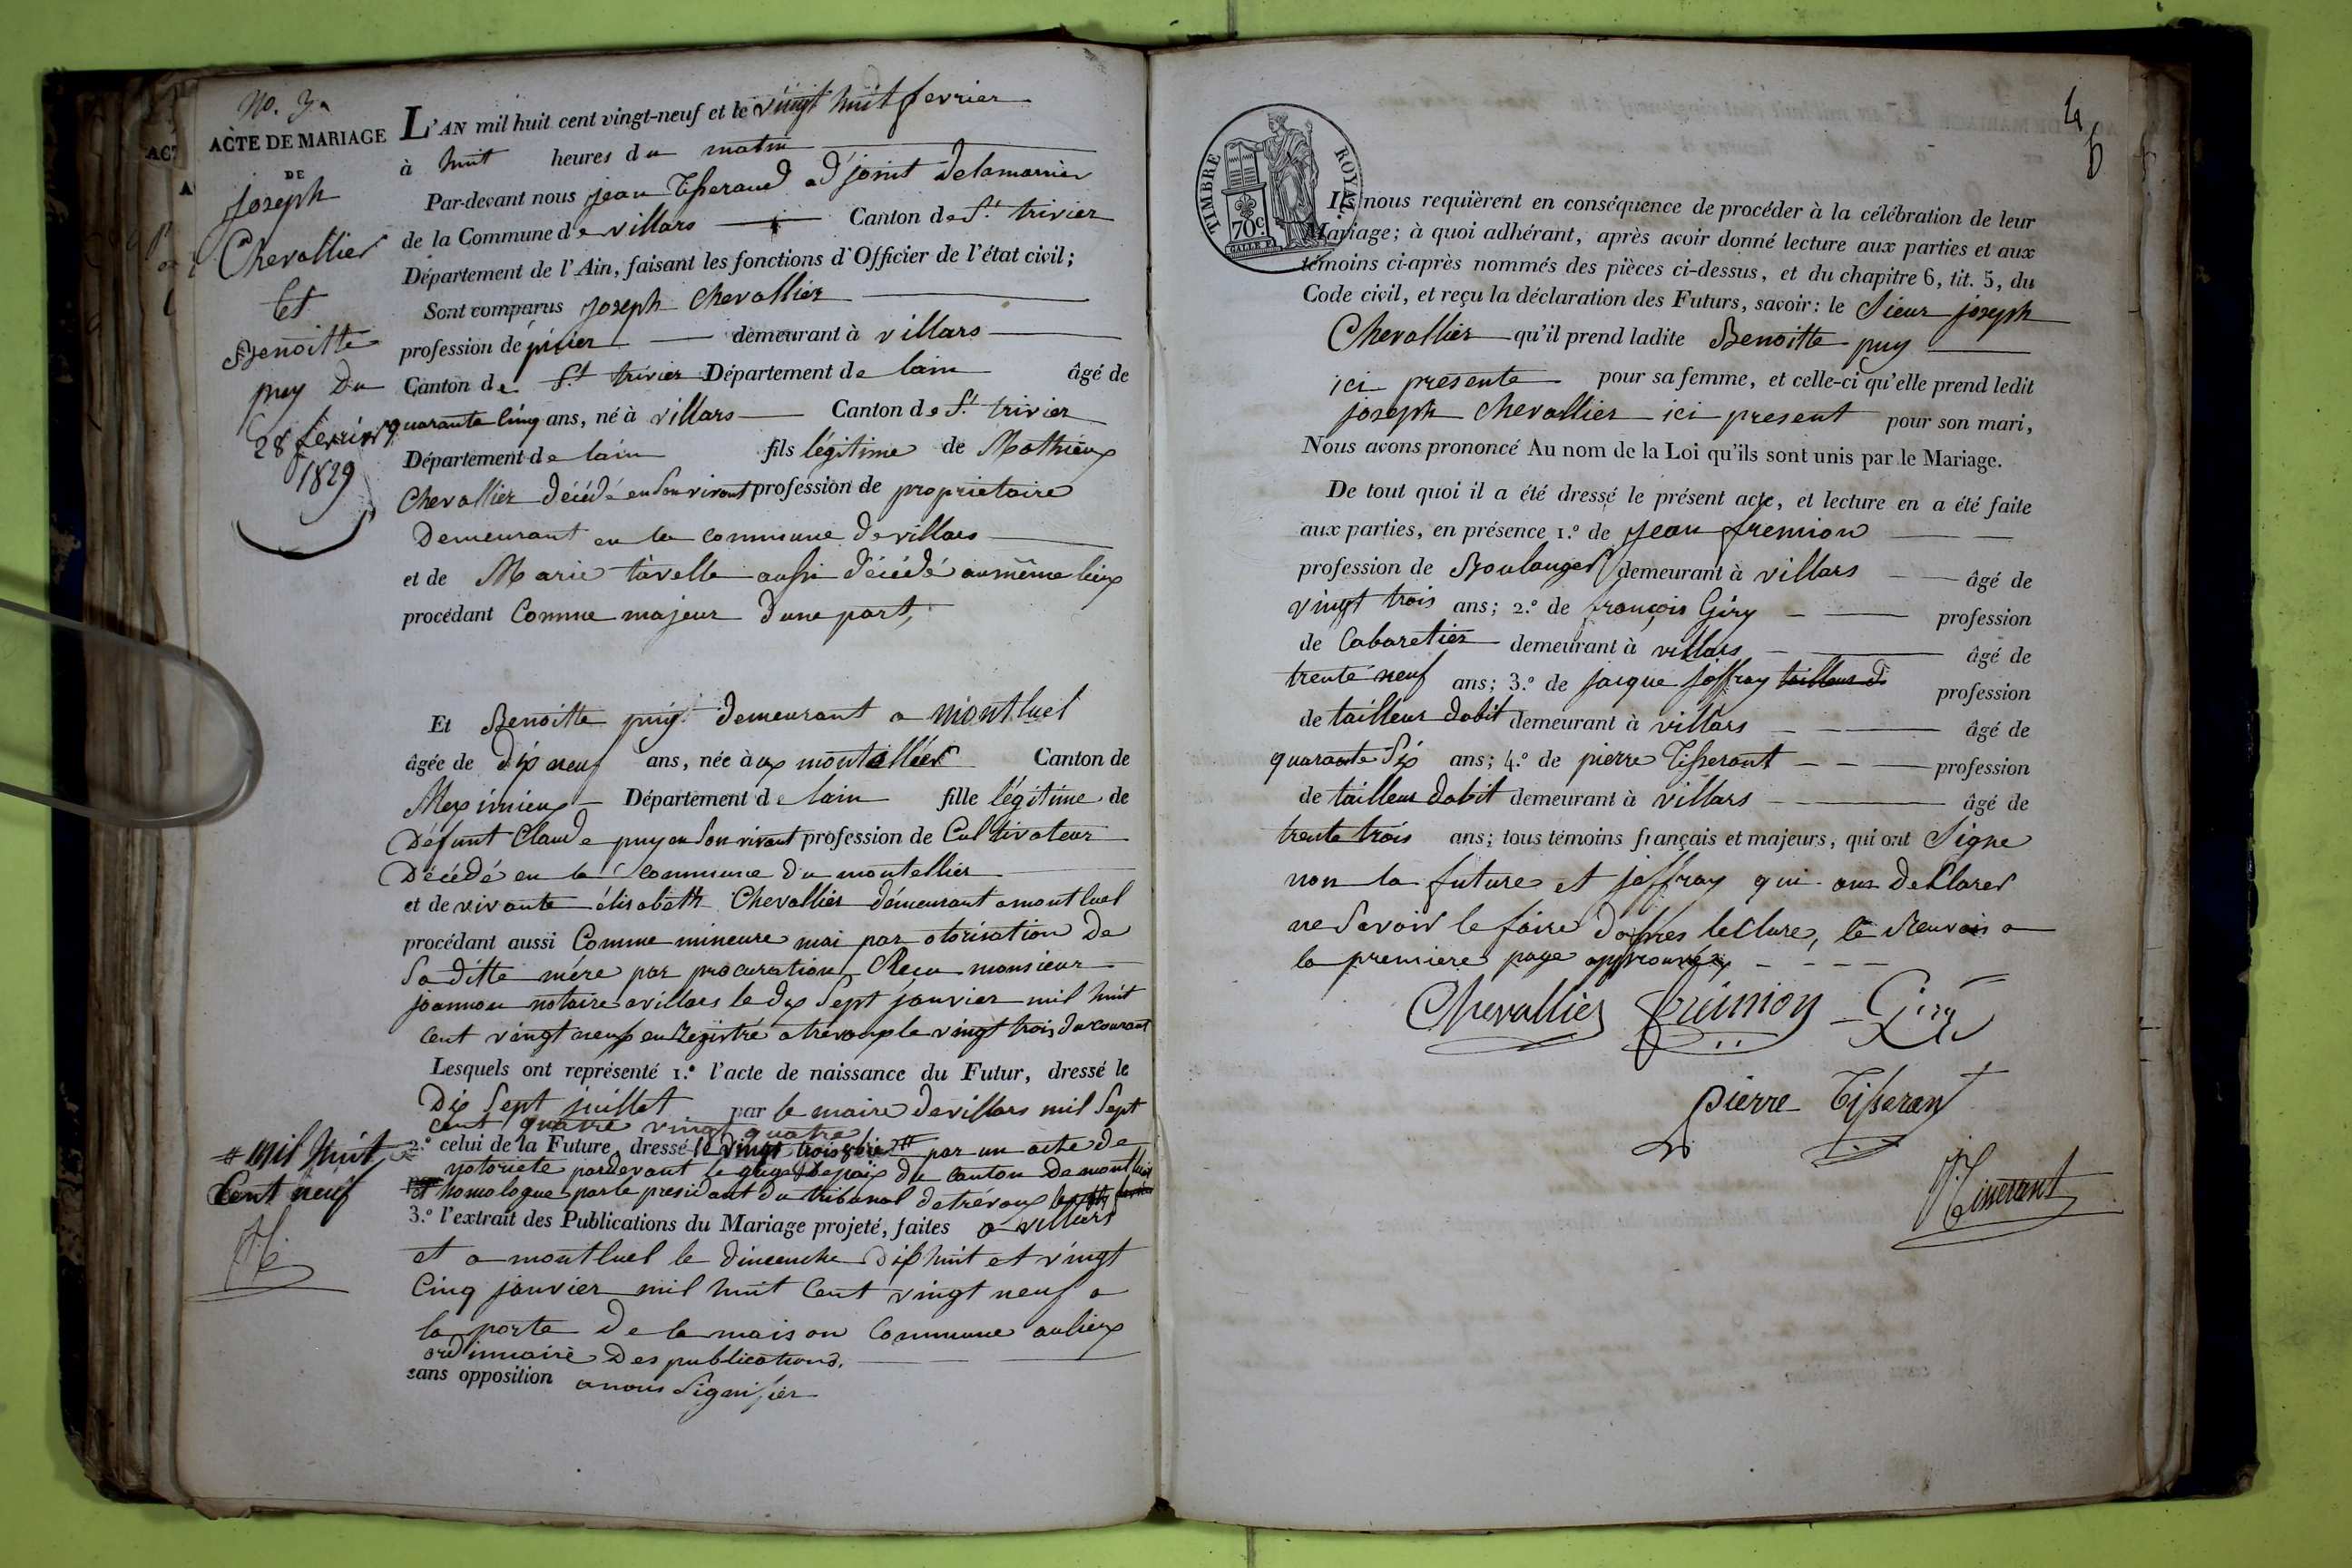 No. 3.
ACTE DE MARIAGE
DE
Joseph
Chevallier
Et
Benoitte
puy Du
28 fevrier
1829
L'AN mil huit cent vingt-neuf et le vingt huit fevrier
à huit heures du matin
Par-devant nous jean Tisserand adjoint
de la Commune de villars Canton de St. trivier
Département de l'Ain, faisant les fonctions d'Officier de l'état civil;
Sont comparus joseph chevallier
profession d'épicier demeurant à villars
Canton de St. trivier Département de lain âgé de
quarante Cinq ans, né à villars Canton de St. trivier
Département de lain fils légitime de Mathieux
Chevallier décédé en Son vivant profession de proprietaire
Demeurant en la commune de villars
et de Marie tavelle aussi décédé au même lieux
procédant Comme majeur d'une part,
Et Benoitte puy demeurant a montluel
âgée de dix neuf ans, née à ux montellier Canton de
Meximieux Département de lain fille légitime de
Défunt Claude puy en Son vivant profession de Cultivateur
Décédé en la Commune du montellier
et de vivante élisabeth Chevallier démeurant a montluel
procédant aussi Comme mineure mai par otorisation De
Sa ditte mére par procuration Reçu monsieur
notaire a villars le dix Sept janvier mil huit
Cent vingt neuf enregistré a trevoux le vingt trois du courant
Lesquels ont représenté 1.º l'acte de naissance du Futur, dressé le
Dix Sept juillet par le maire de villars mil Sept
cent quatre vingt quatre
2.º celui de la Future, dressé le vingt trois 8bre # par un acte de
notoriete pardevant le guge de paix du Canton De montluel
et homologue par le presidant du tribunal de trévoux
# Mil huit
Cent neuf
3.º l'extrait des Publications du Mariage projeté, faites a villars
et a montluel le dimenche dix huit et vingt
Cinq janvier mil huit Cent vingt neuf a
la porte de la maison Commune au lieux
ordinnaire Des publications.
sans opposition a nous Signifier
TIMBRE ROYAL
70c.
Ils nous requièrent en conséquence de procéder à la célébration de leur
Mariage; à quoi adhérant, après avoir donné lecture aux parties et aux
témoins ci-après nommés des pièces ci-dessus, et du chapitre 6, tit. 5, du
Code civil, et reçu la déclaration des Futurs, savoir: le Sieur joseph
Chevallier qu'il prend ladite Benoitte puy
ici presente pour sa femme, et celle-ci qu'elle prend ledit
joseph chevallier ici present pour son mari,
Nous avons prononcé Au nom de la Loi qu'ils sont unis par le Mariage.
De tout quoi il a été dressé le présent acte, et lecture en a été faite
aux parties, en présence 1.º de jean fremion
profession de Boulanger demeurant à villars âgé de
vingt trois ans; 2.º de françois Giry profession
de Cabaretier demeurant à villars âgé de
trente neuf ans; 3.º de jacque joffray tailleur d profession
de tailleur dabit demeurant à villars âgé de
quarante Six ans; 4.º de pierre Tisserant profession
de tailleur dabit demeurant à villars âgé de
trente trois ans; tous témoins français et majeurs, qui ont Signe
non la future et joffray qui ons declarer
ne Savoir le faire dapres lecture, le Renvois a
la premiere page approuvée
Chevallier fremion Giry
pierre Tisseran
Tisserant